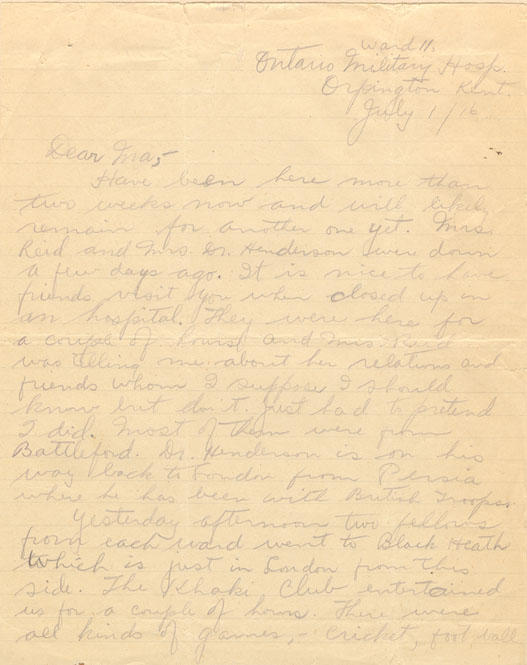 Ward 11.
Ontario Military Hosp.
Orpington Kent.
July 1/16
Dear Ma,-
Have been here more than
two weeks now and will likely
remain for another one yet. Mrs.
Reid and Mrs. Dr. Henderson were down
a few days ago. It is nice to have
friends visit you when closed up in
an hospital. They were here for
a couple of hours and Mrs. Reid
was telling me about her relations and
friends whom I suppose I should
know but don't. Just had to pretend
I did. Most of them were from
Battleford. Dr. Henderson is on his
way back to London from Persia
where he has been with British Troops.
Yesterday afternoon two fellows
from each ward went to Black Heath
which is just in London from this
side. The Khaki Club entertained
us for a couple of hours. There were
all kinds of games,- cricket, foot ball